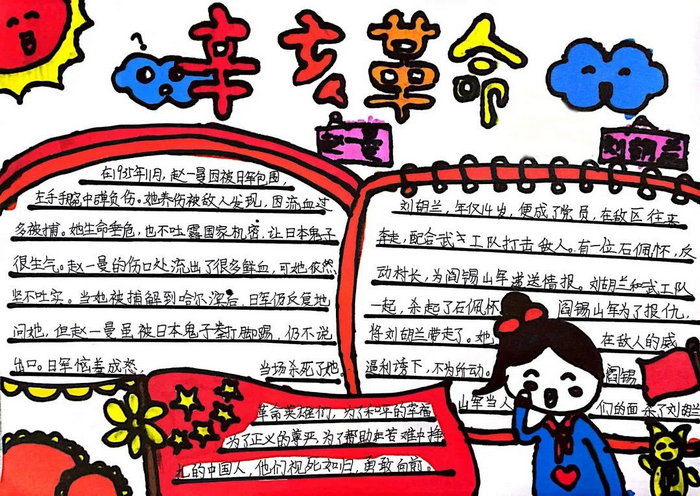 辛亥革命
赵一曼
刘胡兰
在1935年11月,赵一曼因被日军包围,
左手手腕中弹负伤。她养伤被敌人发现,因流血过
多被捕。她生命垂危,也不吐露国家机密,让日本鬼子
很生气。赵一曼的伤口处流出了很多鲜血,可她依然
坚不吐实。当她被捕解到哈尔滨后,日军仍反复地
问她,但赵一曼虽被日本鬼子拳打脚踢,仍不说
出口。日军恼羞成怒,当场杀死了她
刘胡兰,年仅14岁,便成了党员,在敌区往来
奔走,配合武工队打击敌人。有一位石佩怀,反
动村长,为阎锡山军递送情报。刘胡兰和武工队
一起,杀起了石佩怀 阎锡山军为了报仇,
将刘胡兰带走了。她 在敌人的威
逼利诱下,不为所动。 阎锡
山军当人 们的面 杀了刘胡兰
革命英雄们,为了和平的幸福
为了正义的尊严,为了帮助在苦难中挣
扎的中国人,他们视死如归,勇敢向前。